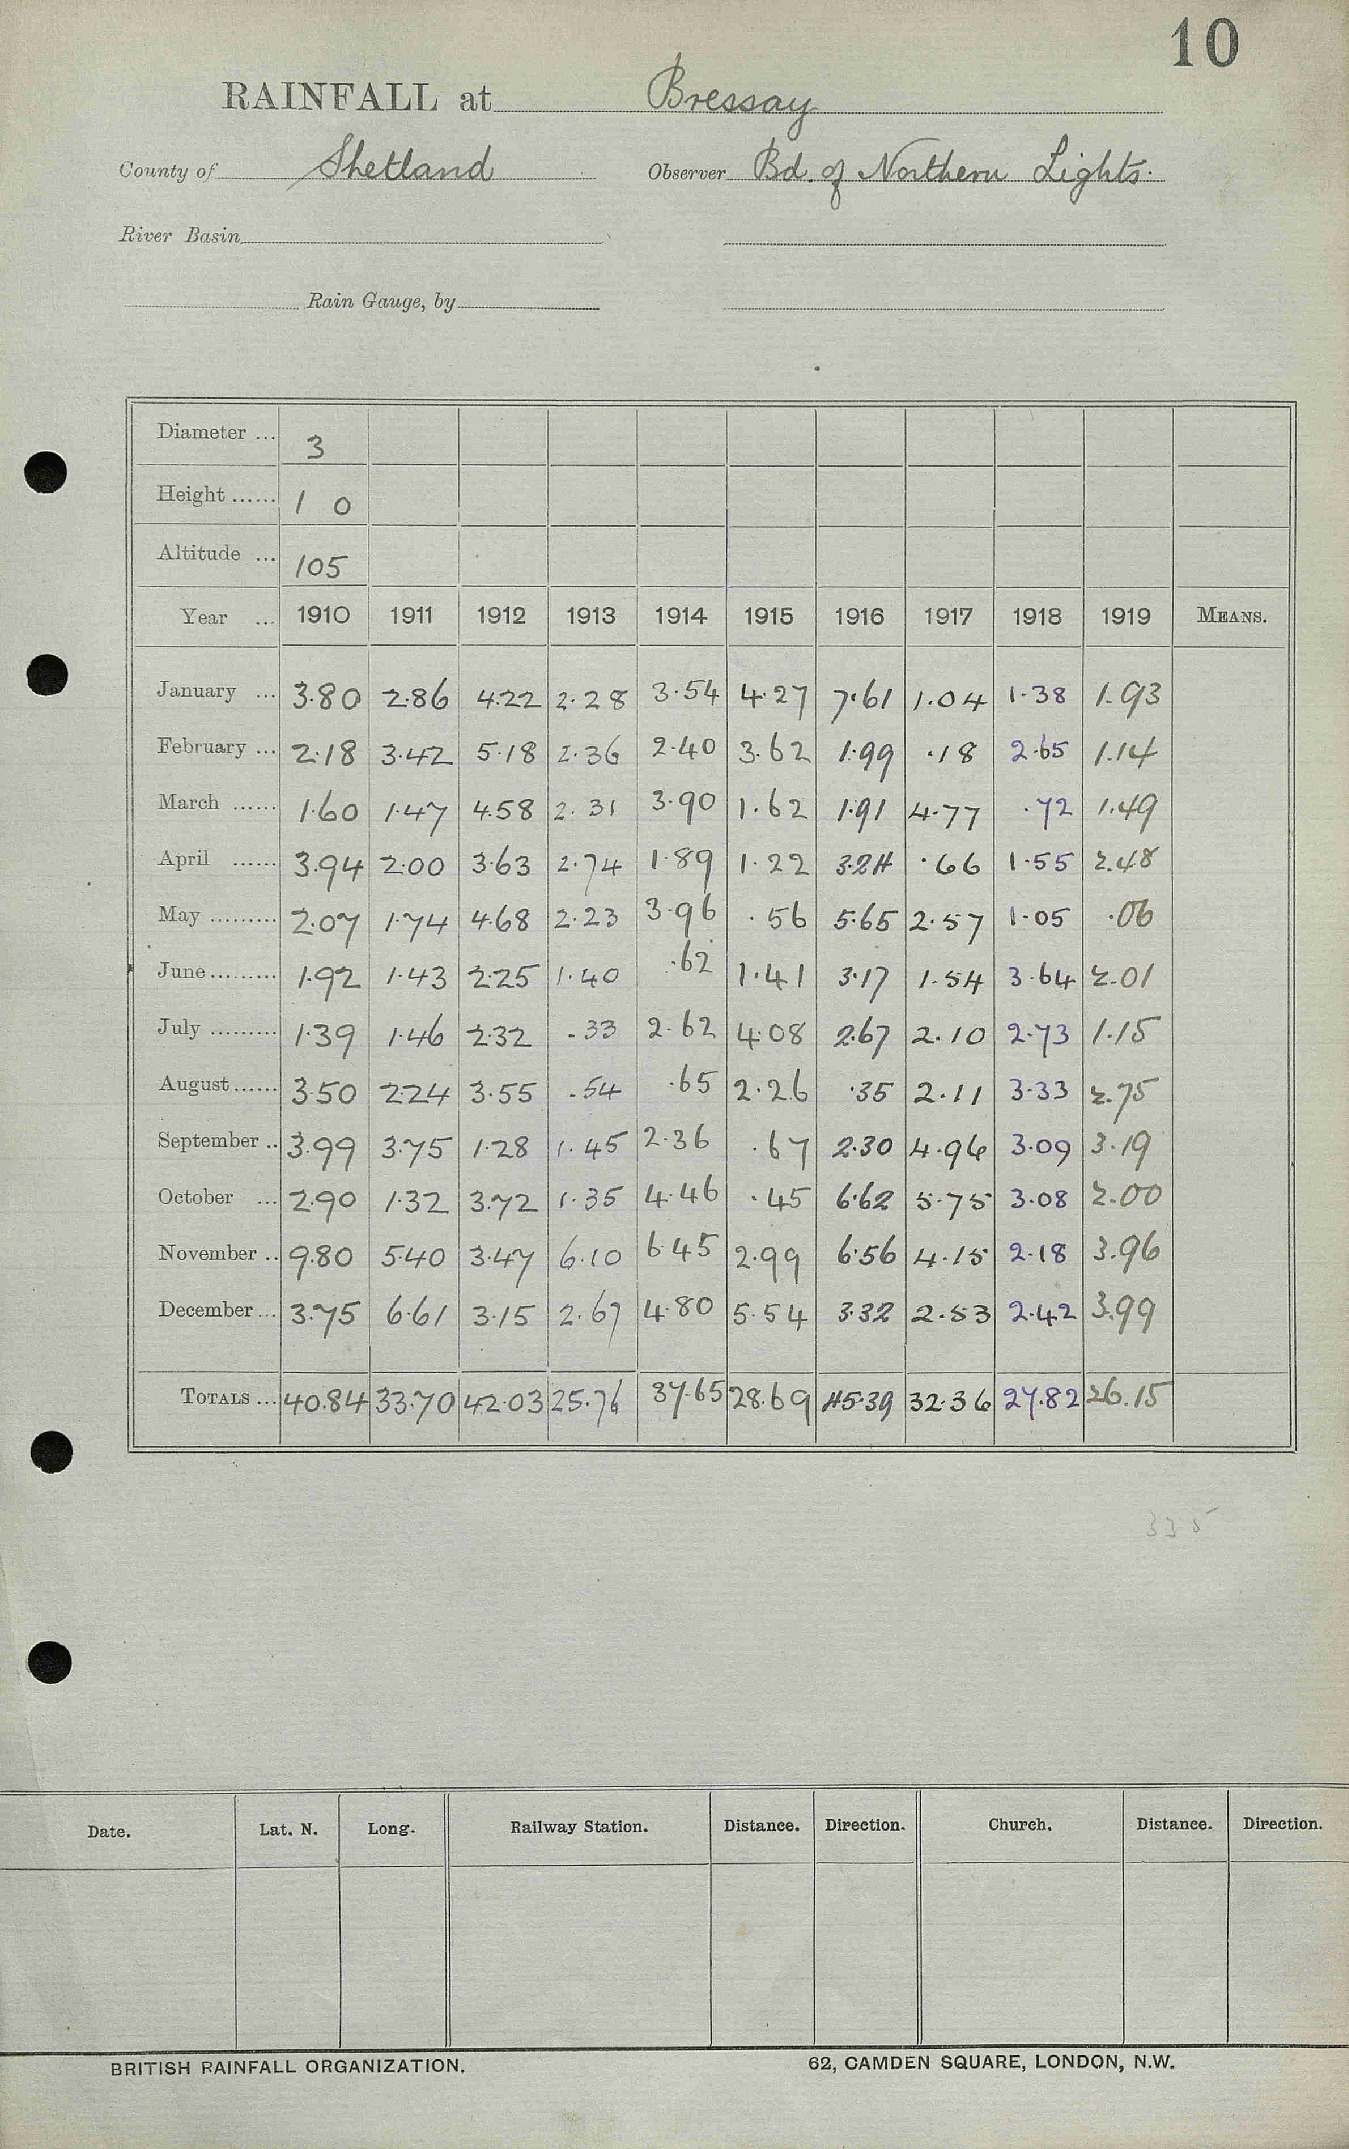 10
RAINFALL at Bressay
County of Shetland Observer Bd. of Northern Lights.
River Basin
Rain Gauge, by
Diameter ... 3
Height ...... 1 0
Altitude ... 105
Year ... 1910 1911 1912 1913 1914 1915 1916 1917 1918 1919 MEANS.
January ... 3.80 2.86 4.22 2.28 3.54 4.27 7.61 1.04 1.38 1.93
February ... 2.18 3.42 5.18 2.36 2.40 3.62 1.99 .18 2.65 1.14
March ...... 1.60 1.47 4.58 2.31 3.90 1.62 1.91 4.77 .72 1.49
April ...... 3.94 2.00 3.63 2.74 1.89 1.22 3.24 .66 1.55 2.48
May ......... 2.07 1.74 4.68 2.23 3.96 .56 5.65 2.57 1.05 .06
June ......... 1.92 1.43 2.25 1.40 .62 1.41 3.17 1.54 3.64 2.01
July ......... 1.39 1.46 2.32 .33 2.62 4.08 2.67 2.10 2.73 1.15
August ...... 3.50 2.24 3.55 .54 .65 2.26 .35 2.11 3.33 2.75
September .. 3.99 3.75 1.28 1.45 2.36 .67 2.30 4.96 3.09 3.19
October ... 2.90 1.32 3.72 1.35 4.46 .45 6.62 5.75 3.08 2.00
November .. 9.80 5.40 3.47 6.10 6.45 2.99 6.56 4.15 2.18 3.96
December ... 3.75 6.61 3.15 2.67 4.80 5.54 3.32 2.53 2.42 3.99
TOTALS ... 40.84 33.70 42.03 25.76 37.65 28.69 45.39 32.36 27.82 26.15
335
Date. Lat. N. Long. Railway Station. Distance. Direction. Church. Distance. Direction.
BRITISH RAINFALL ORGANIZATION. 62, CAMDEN SQUARE, LONDON, N.W.